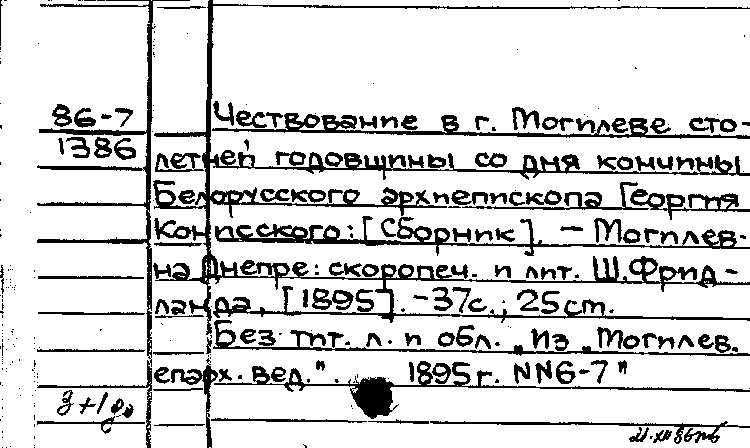 86-7
1386
Чествование в г. Могилеве сто-
летней годовщины со дня кончины
Белорусского архиепископа Георгия
Конисского: [Сборник]. — Могилев-
на Днепре: скоропеч. и лит. Ш. Фрид-
ланда, [1895]. - 37с.; 25 cm.
Без тит. л. и обл. „Из „Могилев.
епарх. вед.". 1895г. NN6-7"